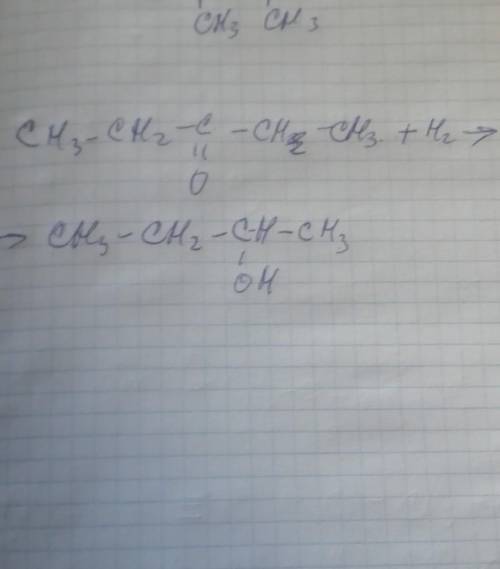 CH3 CH3
CH3-CH2-C-CH2-CH3 + H2 →
||
O
→ CH3-CH2-CH-CH3
OH